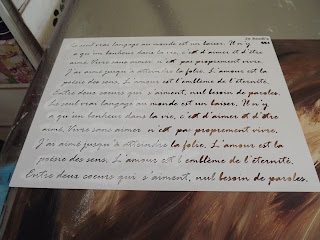 Le seul vrai langage au monde est un baiser. Il n'y
a qu'un bonheur dans la vie, c'est d'aimer et d'être
aimé. Vivre sans aimer n'est pas proprement vivre.
J'ai aimé jusqu'à atteindre la folie. L'amour est la
poésie des sens. L'amour est l'emblème de l'éternité.
Entre deux coeurs qui s'aiment, nul besoin de paroles.
Le seul vrai langage au monde est un baiser. Il n'y
a qu'un bonheur dans la vie, c'est d'aimer et d'être
aimé. Vivre sans aimer n'est pas proprement vivre.
J'ai aimé jusqu'à atteindre la folie. L'amour est la
poésie des sens. L'amour est l'emblème de l'éternité.
Entre deux coeurs qui s'aiment, nul besoin de paroles.